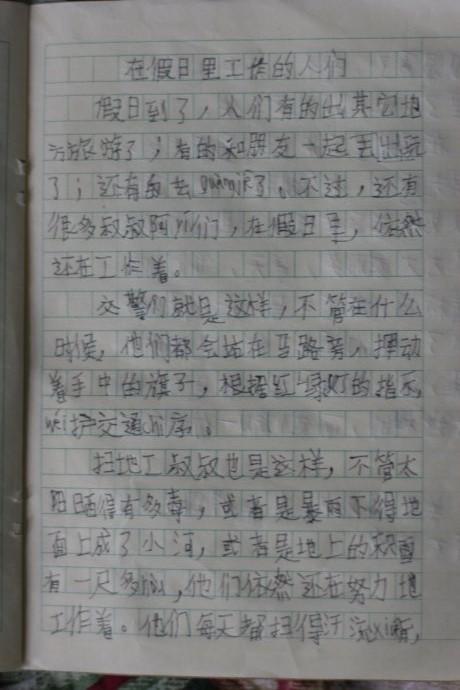 在假日里工作的人们
假日到了，人们有的出其它地
方旅游了；有的和朋友一起去出玩
了；还有的去guàngjiē了。不过，还有
很多叔叔阿yí们，在假日里，依然
还在工作着。
交警们就是这样，不管在什么
时候，他们都会站在马路旁，挥动
着手中的旗子，根据红绿灯的指示，
wéi护交通chì序。
扫地工叔叔也是这样，不管太
阳晒得有多毒，或者是暴雨下得地
面上成了小河，或者是地上的积雪
有一尺多hòu，他们依然还在努力地
工作着。他们每天都扫得汗流